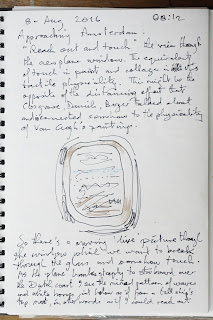 8 - Aug 2016 08:12
Approaching Amsterdam.
"Reach out and touch" - the view through
the aeroplane window. The equivalent
of touch in paint and collage
tactile physicality. This might be the
opposite of the distancing effect that
Cosgrove, Daniels, Berger talked about
and connected somehow to the physicality
of Van Gogh's paintings.
So there's a moving "live" picture through
the window which we want to break
through the glass and somehow touch.
As the plane banks to starboard over
the Dutch coast I see the pattern of waves
and white horses below as if from a tall ship's
top mast, in other words as if I could reach out